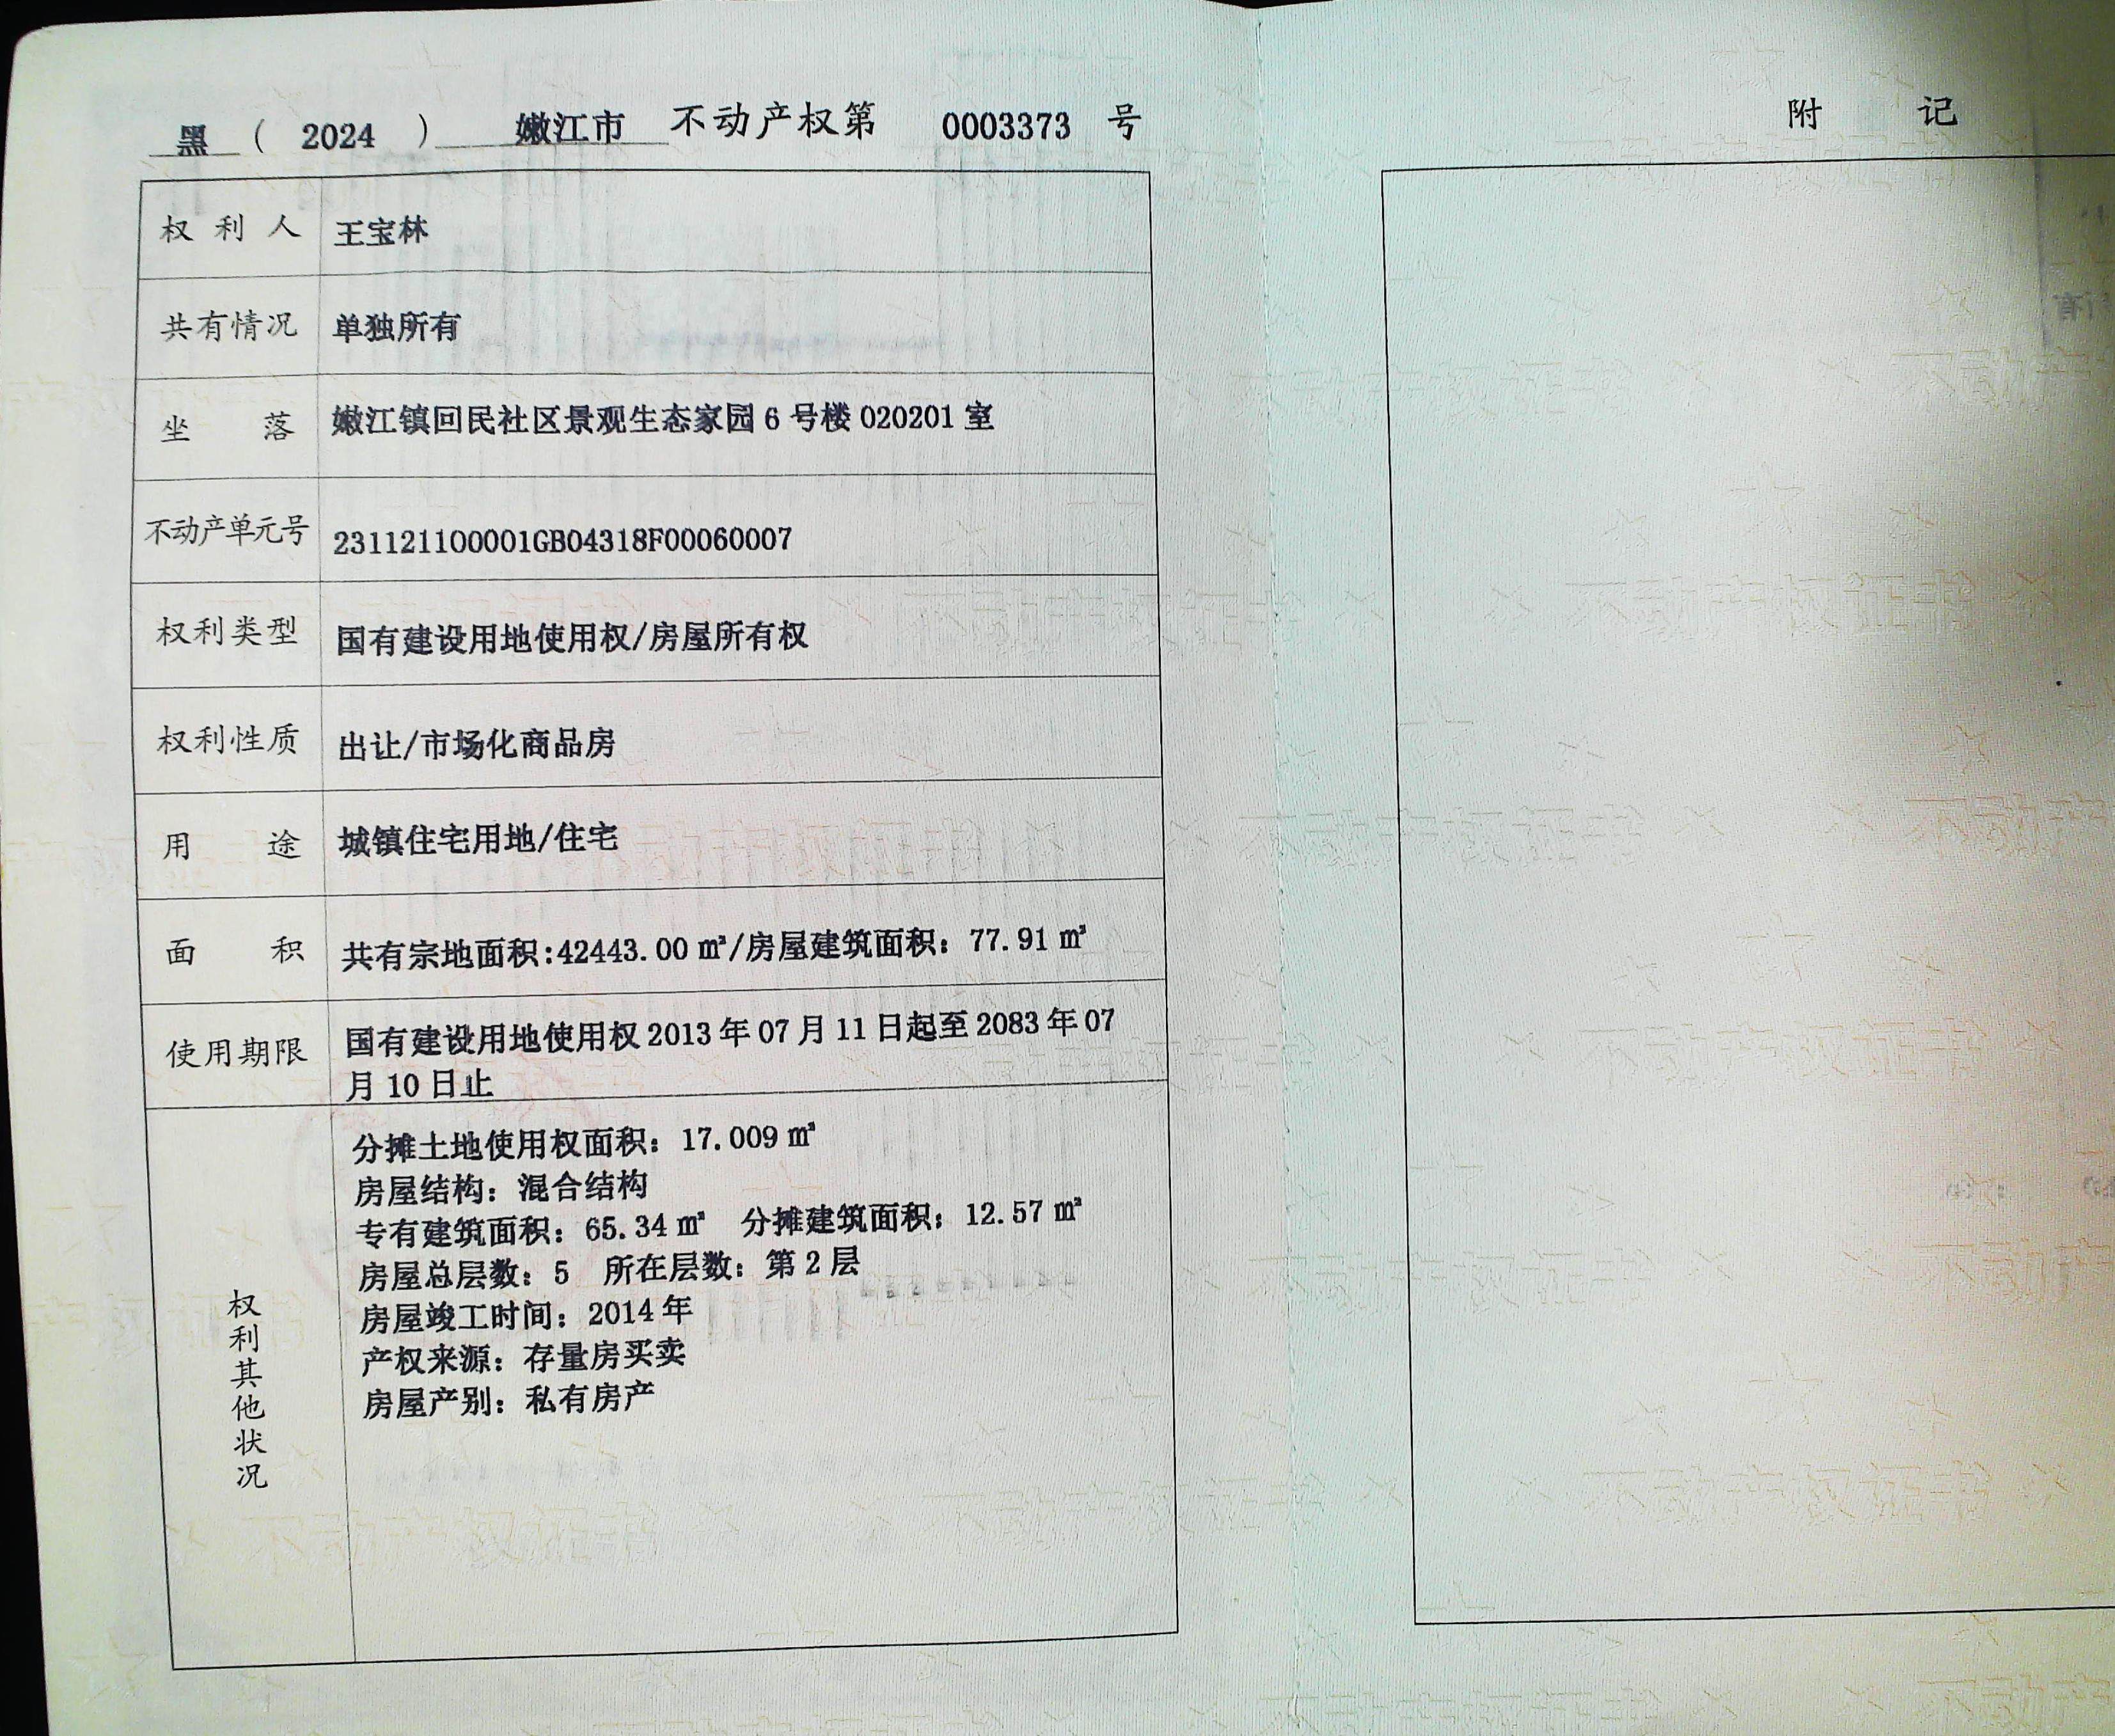 黑 ( 2024 ) 嫩江市 不动产权第 0003373 号
权利人 王宝林
共有情况 单独所有
坐落 嫩江镇回民社区景观生态家园6号楼020201室
不动产单元号 231121100001GB04318F00060007
权利类型 国有建设用地使用权/房屋所有权
权利性质 出让/市场化商品房
用途 城镇住宅用地/住宅
面积 共有宗地面积:42443.00㎡/房屋建筑面积：77.91㎡
使用期限 国有建设用地使用权2013年07月11日起至2083年07
月10日止
权利其他状况
分摊土地使用权面积：17.009㎡
房屋结构：混合结构
专有建筑面积：65.34㎡ 分摊建筑面积：12.57㎡
房屋总层数：5 所在层数：第2层
房屋竣工时间：2014年
产权来源：存量房买卖
房屋产别：私有房产
附记